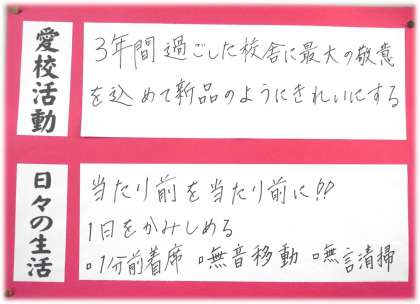 愛校活動
3年間過ごした校舎に最大の敬意
を込めて新品のようにきれいにする
日々の生活
当たり前を当たり前に!!
1日をかみしめる
▫1分前着席 ▫無音移動 ▫無言清掃